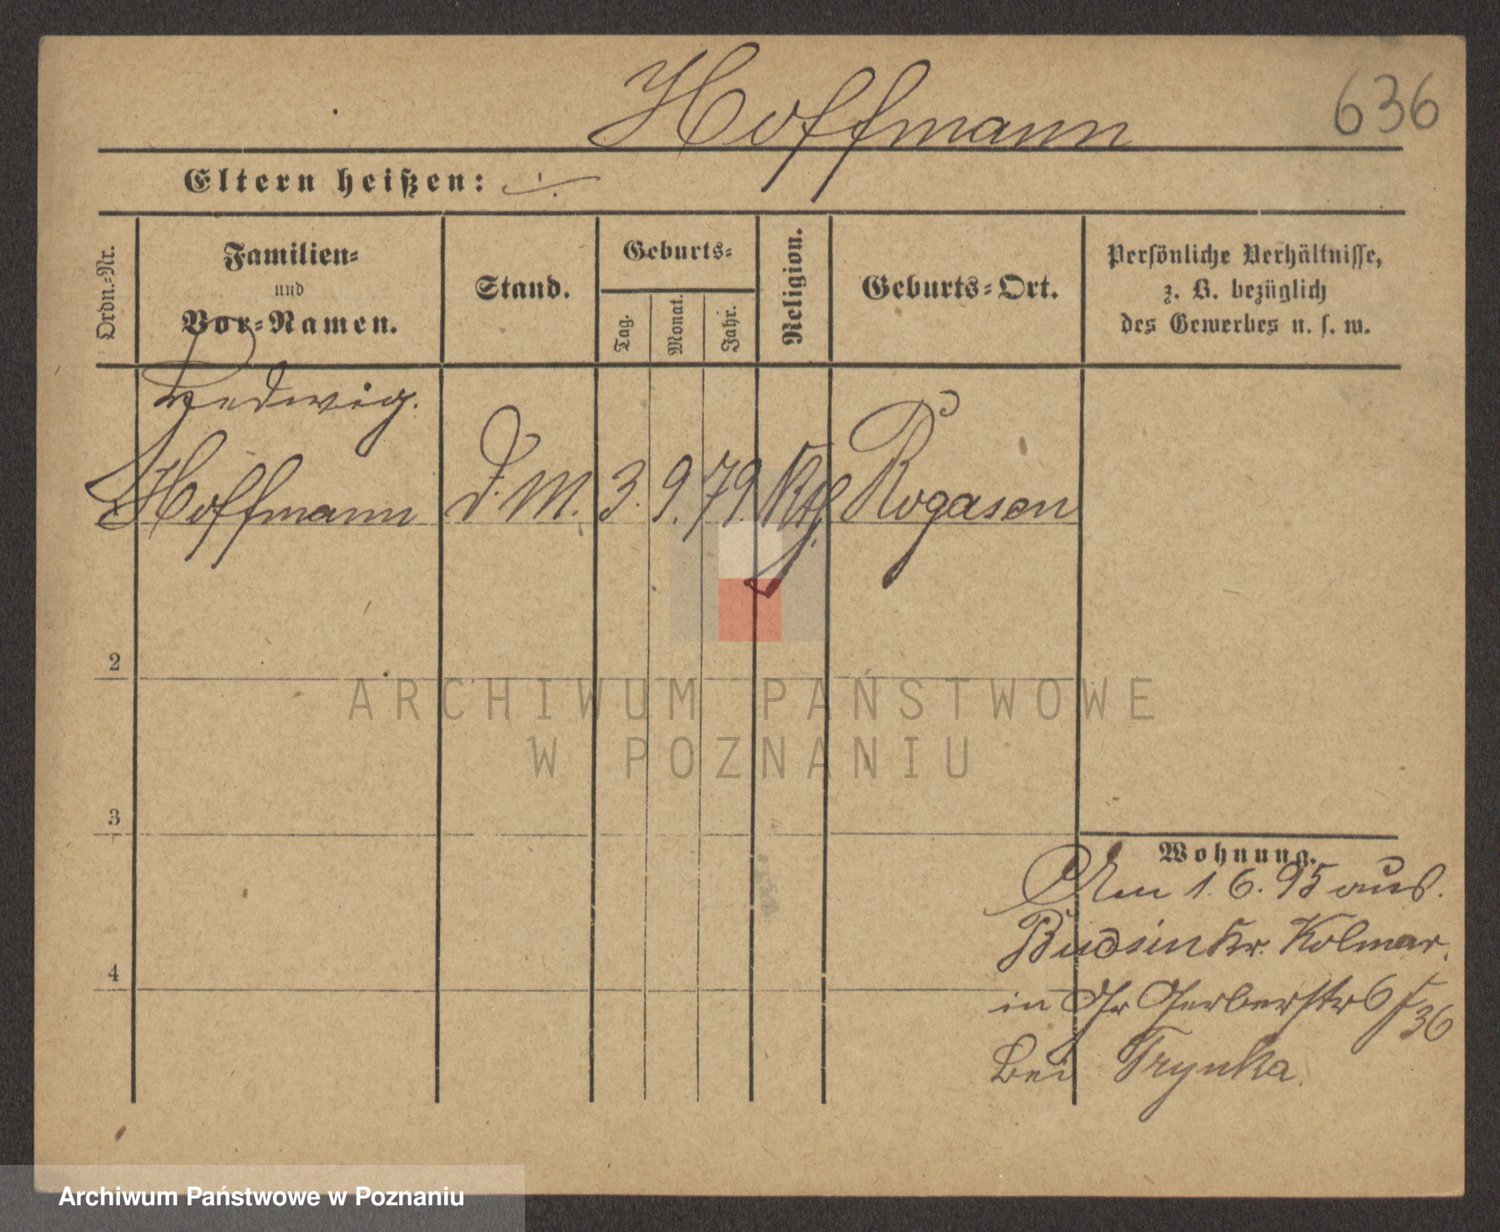 Hoffmann
636
Eltern heißen: ./.
Ordn.-Nr.
Familien-
und
Vor-Namen.
Stand.
Geburts-
Tag.
Monat.
Jahr.
Religion.
Geburts-Ort.
Persönliche Verhältnisse,
z. B. bezüglich
des Gewerbes u. s. w.
Hedwig.
Hoffmann D. M. 3. 9. 79. Kth. Rogasen
2
3
4
Wohnung.
Am 1. 6. 95 aus.
Budsin Kr. Kolmar.
in Gerberstr 6
36
bei Trynka.
ARCHIWUM PAŃSTWOWE
W POZNANIU
Archiwum Państwowe w Poznaniu